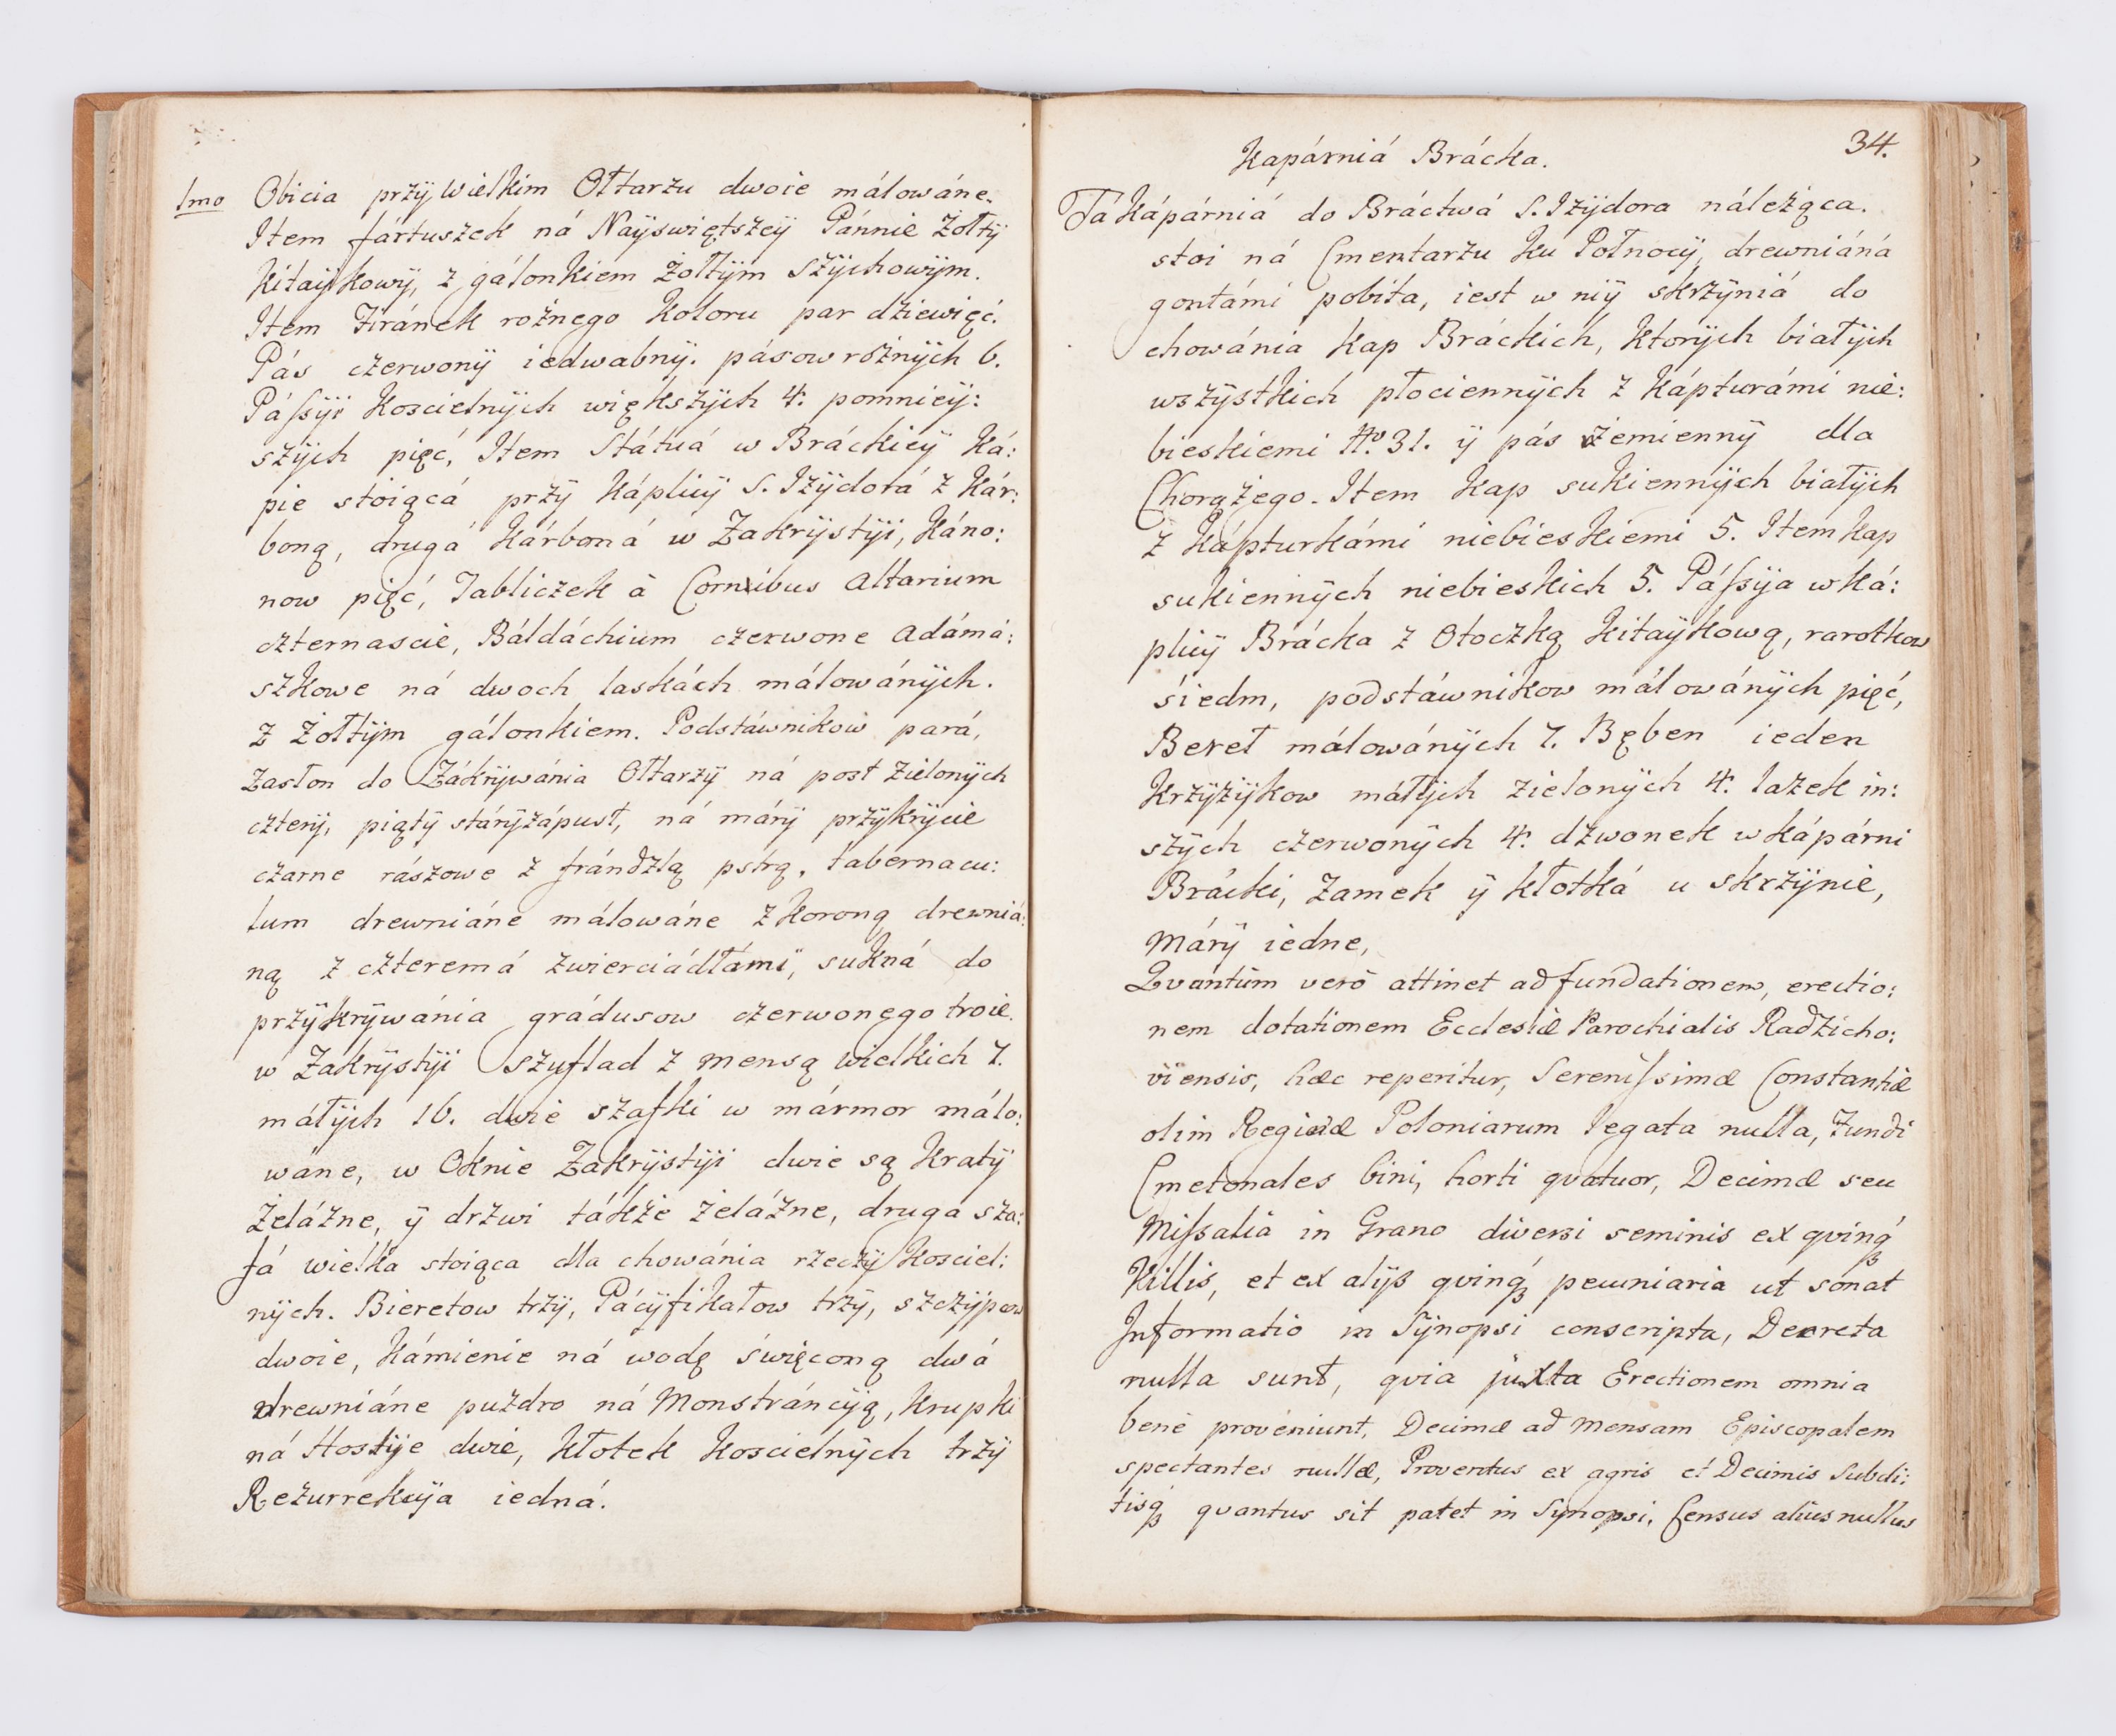 1mo Obicia przÿ Wielkim Ołtarzu dwoie málowáne.
Item fártuszek ná Nayswiętszeÿ Pánnie Zołtÿ
kitaÿkowÿ, z gálonkiem żołtÿm szÿchowÿm.
Item Firánek rożnego koloru par dziewięć.
Pás czerwonÿ iedwabnÿ. pásow rożnÿch 6.
Páſsÿi Koscielnÿch większÿch 4. pomnieÿ:
szÿch pięć, Item Státuá w Bráckieÿ Ká:
pie stoiącá przÿ Káplicÿ S. Izÿdorá z Kár:
boną, drugá Kárboná w Zakrÿstÿi, Káno:
now pięć, Tabliczek à Cornibus Altarium
czternascie, Báldáchium czerwone Adámá:
szkowe ná dwoch laskách málowánÿch.
z żołtÿm gálonkiem. Podstáwnikow pará,
Zasłon do Zákrÿwánia Ołtarzÿ ná post zielonÿch
czterÿ, piątÿ stárÿ zápust, ná márÿ przÿkrÿcie
czarne rászowe z frándzlą pstrą, tabernacu:
lum drewniáne málowáne z koroną drewniá:
ną z czteremá zwierciádłámi, sukná do
przÿkrÿwánia grádusow czerwonego troie.
w Zákrÿstÿi Szuflad z mensą wielkich 7.
máłÿch 16. dwie szafki w mármor málo:
wane, w Oknie Zakrÿstÿi dwie są Kratÿ
Żeláżne, ÿ drzwi tákże żeláżne, druga sza:
fá wielka stoiąca dla chowánia rzeczÿ Kosciel:
nÿch. Bieretow trzÿ, Pácÿfikałow trzÿ, szczÿpcow
dwoie, Kámienie ná wodę święconą dwá
drewniáne puzdro ná Monstráncÿą, Krupki
ná Hostÿe dwie, Kłotek Koscielnÿch trzÿ
Rezurrekcÿa iedná.
34.
Kapárniá Brácka.
Tá Kápárniá do Bráctwá S. Izÿdora náleżąca.
stoi ná Cmentarzu ku Połnocÿ, drewniáná
gontámi pobita, iest w niÿ skrzÿniá do
chowánia Kap Bráckich, ktorÿch białÿch
wszÿstkich płociennÿch z Kápturámi nie:
bieskiemi No. 31. ÿ pás rzemiennÿ dla
Chorążego. Item Kap sukiennÿch białÿch
z Kápturkámi niebieskiemi 5. Item Kap
sukiennÿch niebieskich 5. Páſsÿja w Ká:
plicÿ Brácka z Otoczką Kitaÿkową, rarotkow
śiedm, podstáwnikow málowánÿch pięć,
Bereł málowánÿch 7. Bęben ieden
Krzÿzÿkow máłÿch zielonÿch 4. lazek in:
szÿch czerwonÿch 4. dzwonek w Kápárni
Brácki, Zamek ÿ kłotká u skrzÿnie,
Márÿ iedne,
Qvantùm verò attinet ad fundationem, erectio:
nem dotationem Ecclesiæ Parochialis Radzicho:
viensis, hæc reperitur, Sereniſsimæ Constantiæ
olim Reginæ Poloniarum legata nulla, Fundi
Cmetonales bini, horti qvatuor, Decimæ seu
Miſsalia in Grano diversi seminis ex qvinq́ꝫ
Villis, et ex alÿs qvinq́ꝫ pecuniaria ut sonat
Informatio in Sÿnopsi conscripta, Decreta
nulla sunt, qvia juxta Erectionem omnia
benè proveniunt, Decimæ ad Mensam Episcopalem
spectantes nullæ, Proventus ex agris et Decimis Subdi:
tisq́ꝫ qvantus sit patet in Synopsi, Census alius nullus